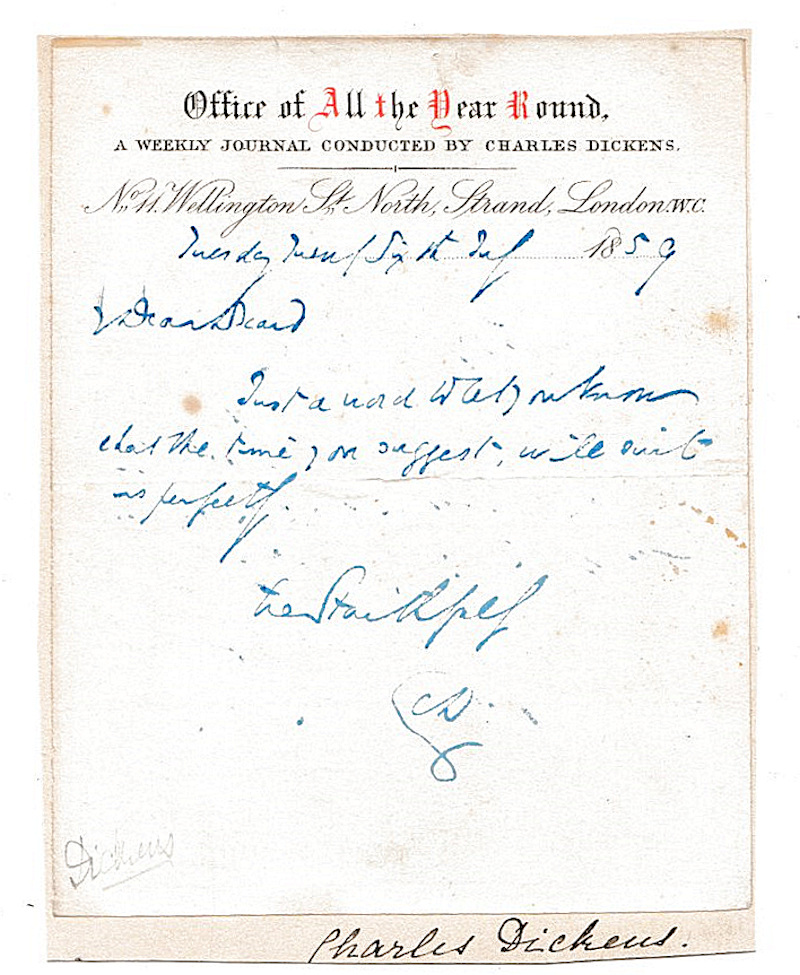 Office of All the Year Round,
A WEEKLY JOURNAL CONDUCTED BY CHARLES DICKENS.
No. 11. Wellington St. North, Strand, London. W.C.
Tuesday Twenty Sixth July 1859
My Dear Beard
Just a word to let you know
that the time you suggest, will suit
us perfectly.
Ever Faithfully
CD.
Dickens
Charles Dickens.